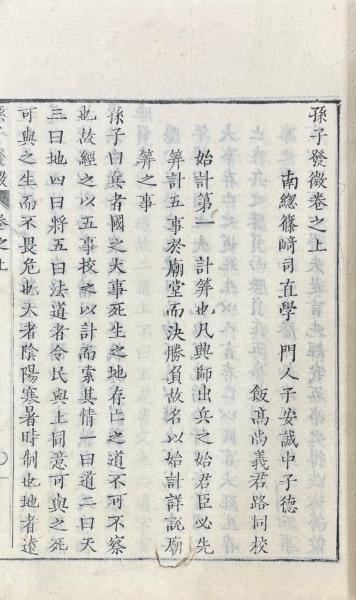 孫子發微卷之上
南總篠﨑司直學 門人子安誠中子德
飯髙尚義君路同校
始計第一 計筭也凡興師出兵之始君臣必先
筭計五事於廟堂而決勝負故名以始計詳說廟
筭之事
孫子曰兵者國之大事死生之地存亡之道不可不察
也故經之以五事校之以計而索其情一曰道二曰天
三曰地四曰將五曰法道者令民與上同意可與之死
可與之生而不畏危也天者陰陽寒暑時制也地者遠
孫子發微 卷之上